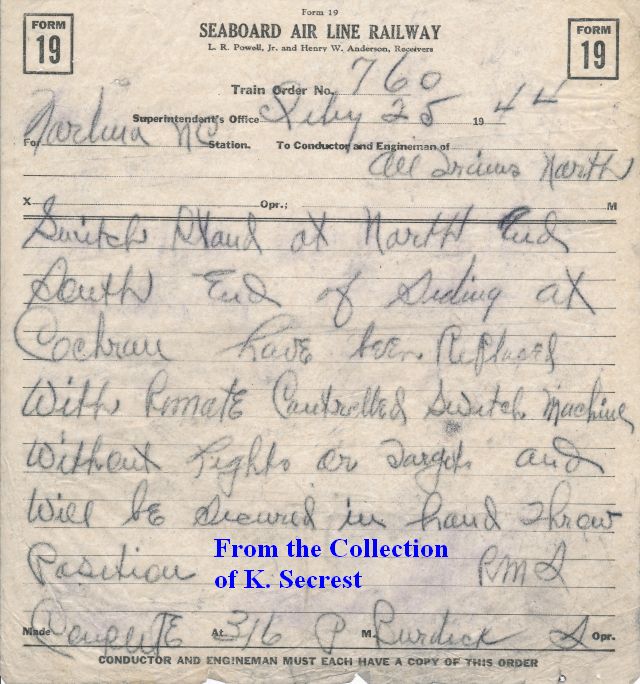 Form 19
FORM
19
SEABOARD AIR LINE RAILWAY
L. R. Powell, Jr. and Henry W. Anderson, Receivers
FORM
19
Train Order No. 760
Superintendent's Office Feby 25 1944
For Norlina NC Station. To Conductor and Engineman of
All Trains North
X Opr.; M
Switch Stand at North End
South End of Siding at
Cochran have been Replaced
With Remote Controlled Switch Machine
Without Lights or Targets and
Will be secured in hand Throw
Position RMS
From the Collection
of K. Secrest
Made Complete At 316 P M. Burdick Opr.
CONDUCTOR AND ENGINEMAN MUST EACH HAVE A COPY OF THIS ORDER